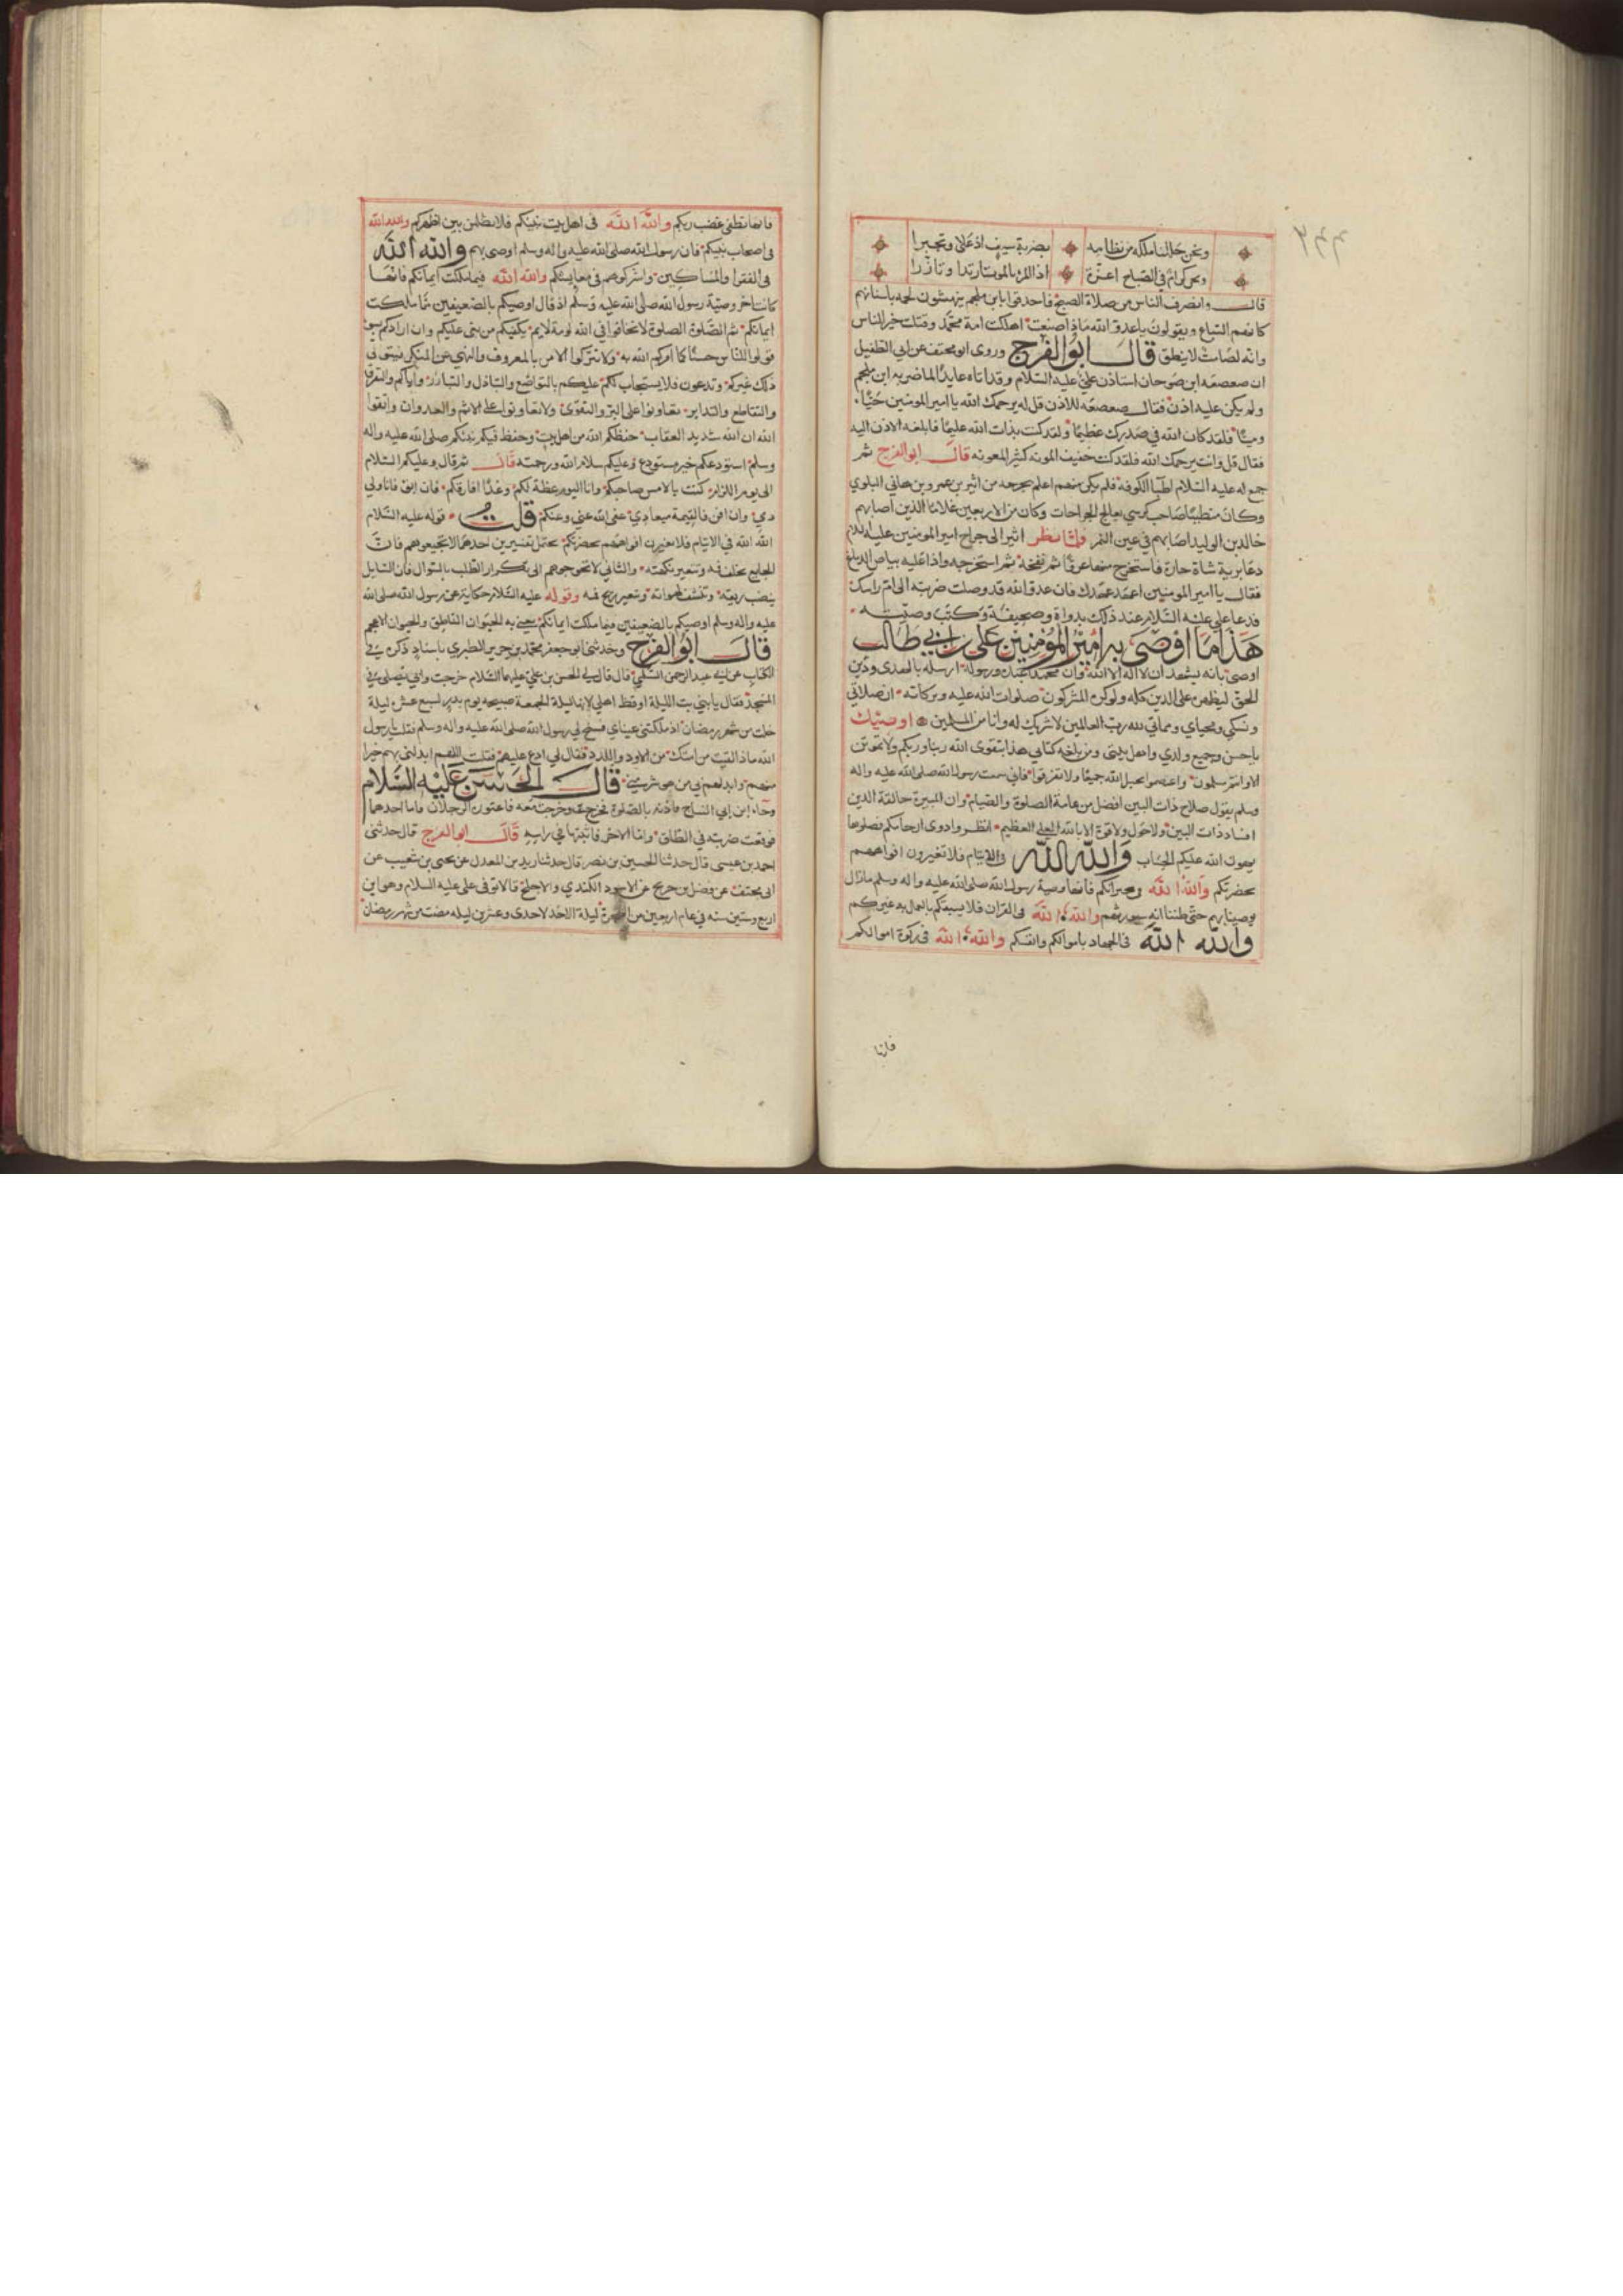 ونحن حللنا ملكه من نظامه بضربة سيف اذ علا وتجبرا
ونحن كرام في الصباح اعزة اذا المرء بالموت ارتدا وتازرا
قال وانصرف الناس من صلاة الصبح فاحدقوا بابن ملجم ينهشون لحمه باسنانهم
كانهم السباع ويقولون يا عدو الله ماذا صنعت اهلكت امة محمد وقتلت خير الناس
وانه لصامت لا ينطق قال ابو الفرج وروى ابو مخنف عن ابي الطفيل
ان صعصعه ابن صوحان استاذن على علي عليه السلام وقد اتاه عايدا لما ضربه ابن ملجم
ولم يكن عليه اذن فقال صعصعه للاذن قل له يرحمك الله يا امير المومنين حيا
وميتا فلقد كان الله في صدرك عظيما ولقد كنت بذات الله عليما فابلغه الاذن اليه
فقال قل وانت يرحمك الله فلقد كنت خفيف المونه كثير المعونه قال ابو الفرج ثم
جمع له عليه السلام اطبا الكوفه فلم يكن منهم اعلم بجرحه من اثير بن عمرو بن هاني البلوي
وكان متطببا صاحب كرسي يعالج الجراحات وكان من الاربعين غلاما الذين اصابهم
خالد بن الوليد اصابهم في عين التمر فلما نظر اثير الى جراح امير المومنين عليه السلام
دعا برية شاة حارة فاستخرج منها عرقا ثم نفخه ثم استخرجه واذا عليه بياض الدماغ
فقال يا امير المومنين اعهد عهدك فان عدو الله قد وصلت ضربته الى ام راسك
فدعا علي عليه السلام عند ذلك بدواة وصحيفة وكتب وصيته
هذا ما اوصى به امير المؤمنين علي بن ابي طالب
اوصى بانه يشهد ان لا اله الا الله وان محمدا عبده ورسوله ارسله بالهدى ودين
الحق ليظهره على الدين كله ولو كره المشركون صلوات الله عليه وبركاته ان صلاتي
ونسكي ومحياي ومماتي لله رب العالمين لا شريك له وانا من المسلمين اوصيك
يا حسن وجميع ولدي واهل بيتي ومن بلغه كتابي هذا بتقوى الله ربنا وربكم ولا تموتن
الا وانتم مسلمون واعتصموا بحبل الله جميعا ولا تفرقوا فاني سمعت رسول الله صلى الله عليه واله
وسلم يقول صلاح ذات البين افضل من عامة الصلوة والصيام وان المبيرة حالقة الدين
افساد ذات البين ولا حول ولا قوة الا بالله العلي العظيم انظروا ذوى ارحامكم فصلوها
يهون الله عليكم الحساب والله الله في الايتام فلا تغيرون افواههم
بحضرتكم والله الله وجيرانكم فانها وصية رسول الله صلى الله عليه واله وسلم ما زال
يوصينا بهم حتى ظننا انه سيورثهم والله الله في القران فلا يسبقكم بالعمل به غيركم
والله الله في الجهاد باموالكم وانفسكم والله الله في زكوة اموالكم
فانها
فانها تطفي غضب ربكم والله الله في اهل بيت نبيكم فلا يظلمن بين اظهركم والله الله
في اصحاب نبيكم فان رسول الله صلى الله عليه واله وسلم اوصى بهم والله الله
في الفقرا والمساكين واشركوهم في معايشكم والله الله فيما ملكت ايمانكم فانها
كانت اخر وصية رسول الله صلى الله عليه وسلم اذ قال اوصيكم بالضعيفين مما ملكت
ايمانكم ثم الصلوة الصلوة لا تخافوا في الله لومة لايم يكفيكم من بغى عليكم وان ارادكم بسوء
قولوا للناس حسنا كما امركم الله به ولا تتركوا الامر بالمعروف والنهي عن المنكر فيتولى
ذلك غيركم وتدعون فلا يستجاب لكم عليكم بالتواضع والتباذل والتبادر واياكم والتفرق
والتقاطع والتدابر تعاونوا على البر والتقوى ولا تعاونوا على الاثم والعدوان واتقوا
الله ان الله شديد العقاب حفظكم الله من اهل بيت وحفظ فيكم نبيكم صلى الله عليه واله
وسلم استودعكم خير مستودع وعليكم سلام الله ورحمته قال ثم قال وعليكم السلام
الى يوم اللزام كنت بالامس صاحبكم وانا اليوم عظة لكم وغدا افارقكم فان ابق فانا ولي
دمي وان افن فالقيمة ميعادي عفى الله عني وعنكم قلت قوله عليه السلام
الله الله في الايتام فلا تغيرن افواههم بحضرتكم يحتمل تفسيرين احدهما لا تجيعوهم فان
الجايع يخلف فمه وتتغير نكهته والثاني لا تحوجوهم الى تكرار الطلب بالسوال فان السايل
ينضب ريقه وتنشف لهواته وتتغير ريح فمه وقوله عليه السلام حكاية عن رسول الله صلى الله
عليه واله وسلم اوصيكم بالضعيفين فيما ملكت ايمانكم يعني به الحيوان الناطق والحيوان الاعجم
قال ابو الفرج وحدثني ابو جعفر محمد بن جرير الطبري باسناد ذكره في
الكتاب عن ابي عبد الرحمن السلمي قال قال لي الحسن بن علي عليهما السلام خرجت وابي يصلي في
المسجد فقال يا بني بت الليلة اوقظ اهلي لانها ليلة الجمعة صبيحة يوم بدر لسبع عشر ليلة
خلت من شهر رمضان اذ ملكتني عيناي فسنح لي رسول الله صلى الله عليه واله وسلم فقلت يا رسول
الله ماذا لقيت من امتك من الاود واللدد فقال لي ادع عليهم فقلت اللهم ابدلني بهم خيرا
منهم وابدلهم بي من هو شر مني قال الحسن عليه السلام
وجاء ابن ابي النباح فاذنه بالصلوة فخرج وخرجت معه فاعتوره الرجلان فاما احدهما
فوقعت ضربته في الطاق واما الاخر فاثبتها في راسه قال ابو الفرج قال حدثني
احمد بن عيسى قال حدثنا الحسين بن نصر قال حدثنا زيد بن المعدل عن يحيى بن شعيب عن
ابي مخنف عن فضل بن خديج عن الاسود الكندي والاجلح قالا توفى علي عليه السلام وهو ابن
اربع وستين سنه في عام اربعين من الهجرة ليلة الاحد لاحدى وعشرين ليله مضت من شهر رمضان